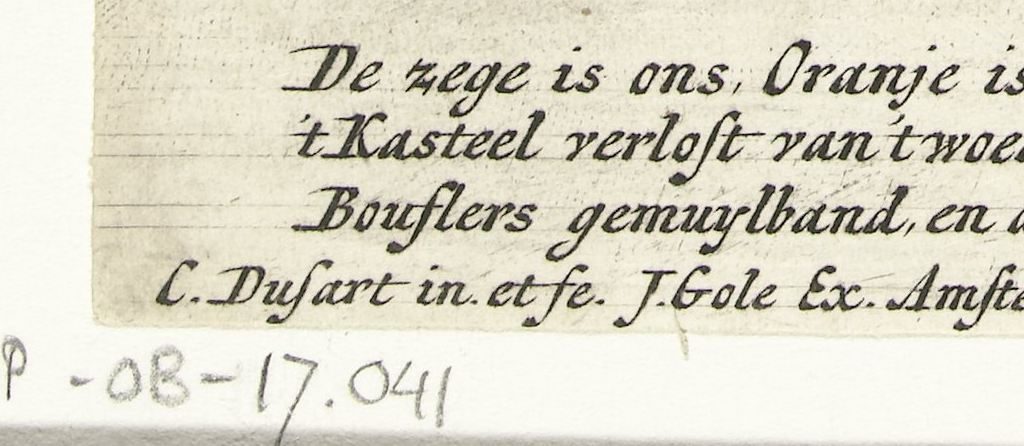 De zege is ons, Oranje is
't Kasteel verloſt van 't woe
Bouflers gemuylband, en
C. Duſart in. et fe. J. Gole Ex. Amſte
P-OB-17.041